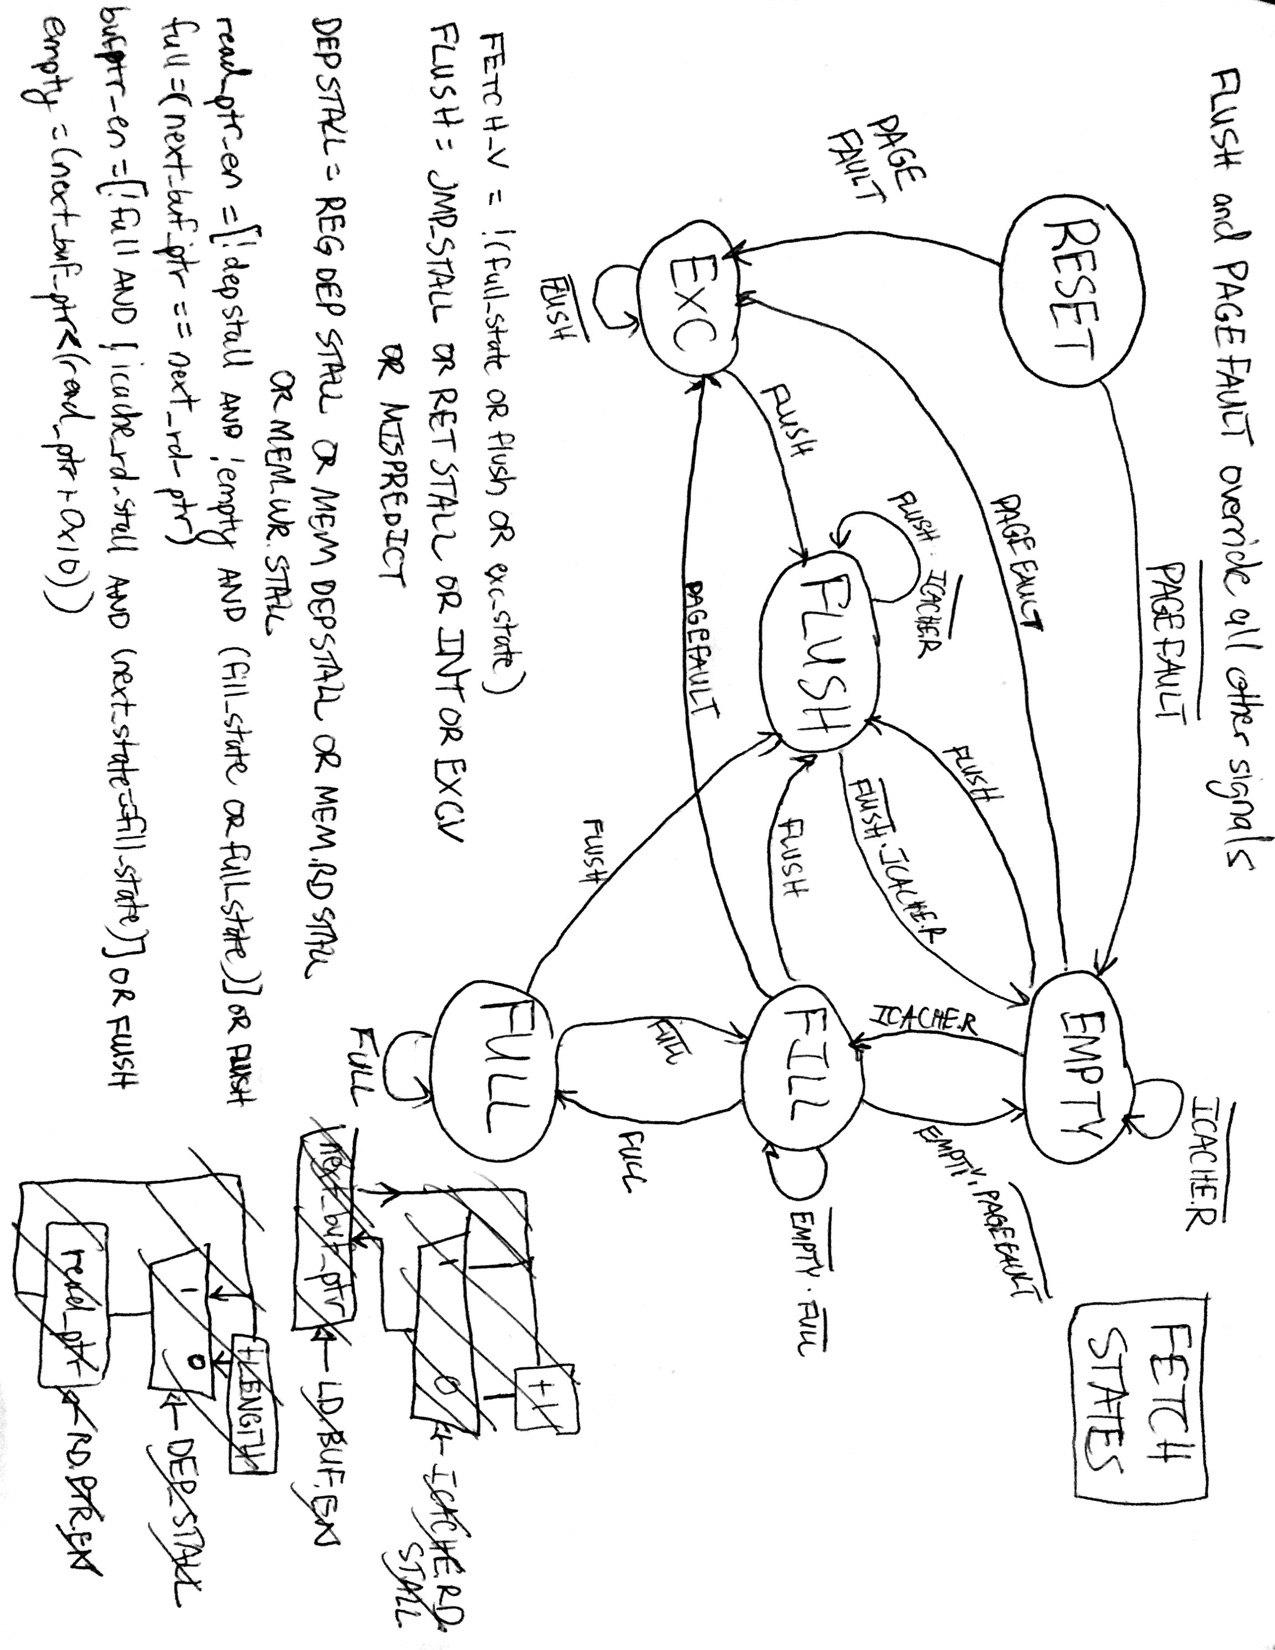 FLUSH and PAGEFAULT override all other signals
FETCH
STATES
RESET
PAGE
FAULT
PAGEFAULT
EXC
FLUSH
FLUSH
PAGEFAULT
PAGEFAULT
FLUSH
FLUSH · ICACHE.R
FLUSH
FLUSH · ICACHE.R
FLUSH
FLUSH
EMPTY
ICACHE.R
ICACHE.R
EMPTY · PAGEFAULT
FILL
EMPTY · FULL
FULL
FULL
FULL
FULL
FETCH_V = !(full_state OR flush OR exc_state)
FLUSH = JMP_STALL OR RET STALL OR INT OR EXCV
OR MISPREDICT
DEPSTALL = REG DEP STALL OR MEM DEPSTALL OR MEM.RD STALL
OR MEM.WR.STALL
read_ptr_en = [!depstall AND !empty AND (fill_state OR full_state)] OR FLUSH
full = (next_buf_ptr == next_rd_ptr)
bufptr_en = [!full AND !icache_rd_stall AND (next_state=fill_state)] OR FLUSH
empty = (next_buf_ptr < (read_ptr + 0x10))
+1
1
0
ICACHE.RD.
STALL
next_buf_ptr
LD.BUF.EN
+LENGTH
1
0
DEP_STALL
read_ptr
RD.PTR.EN